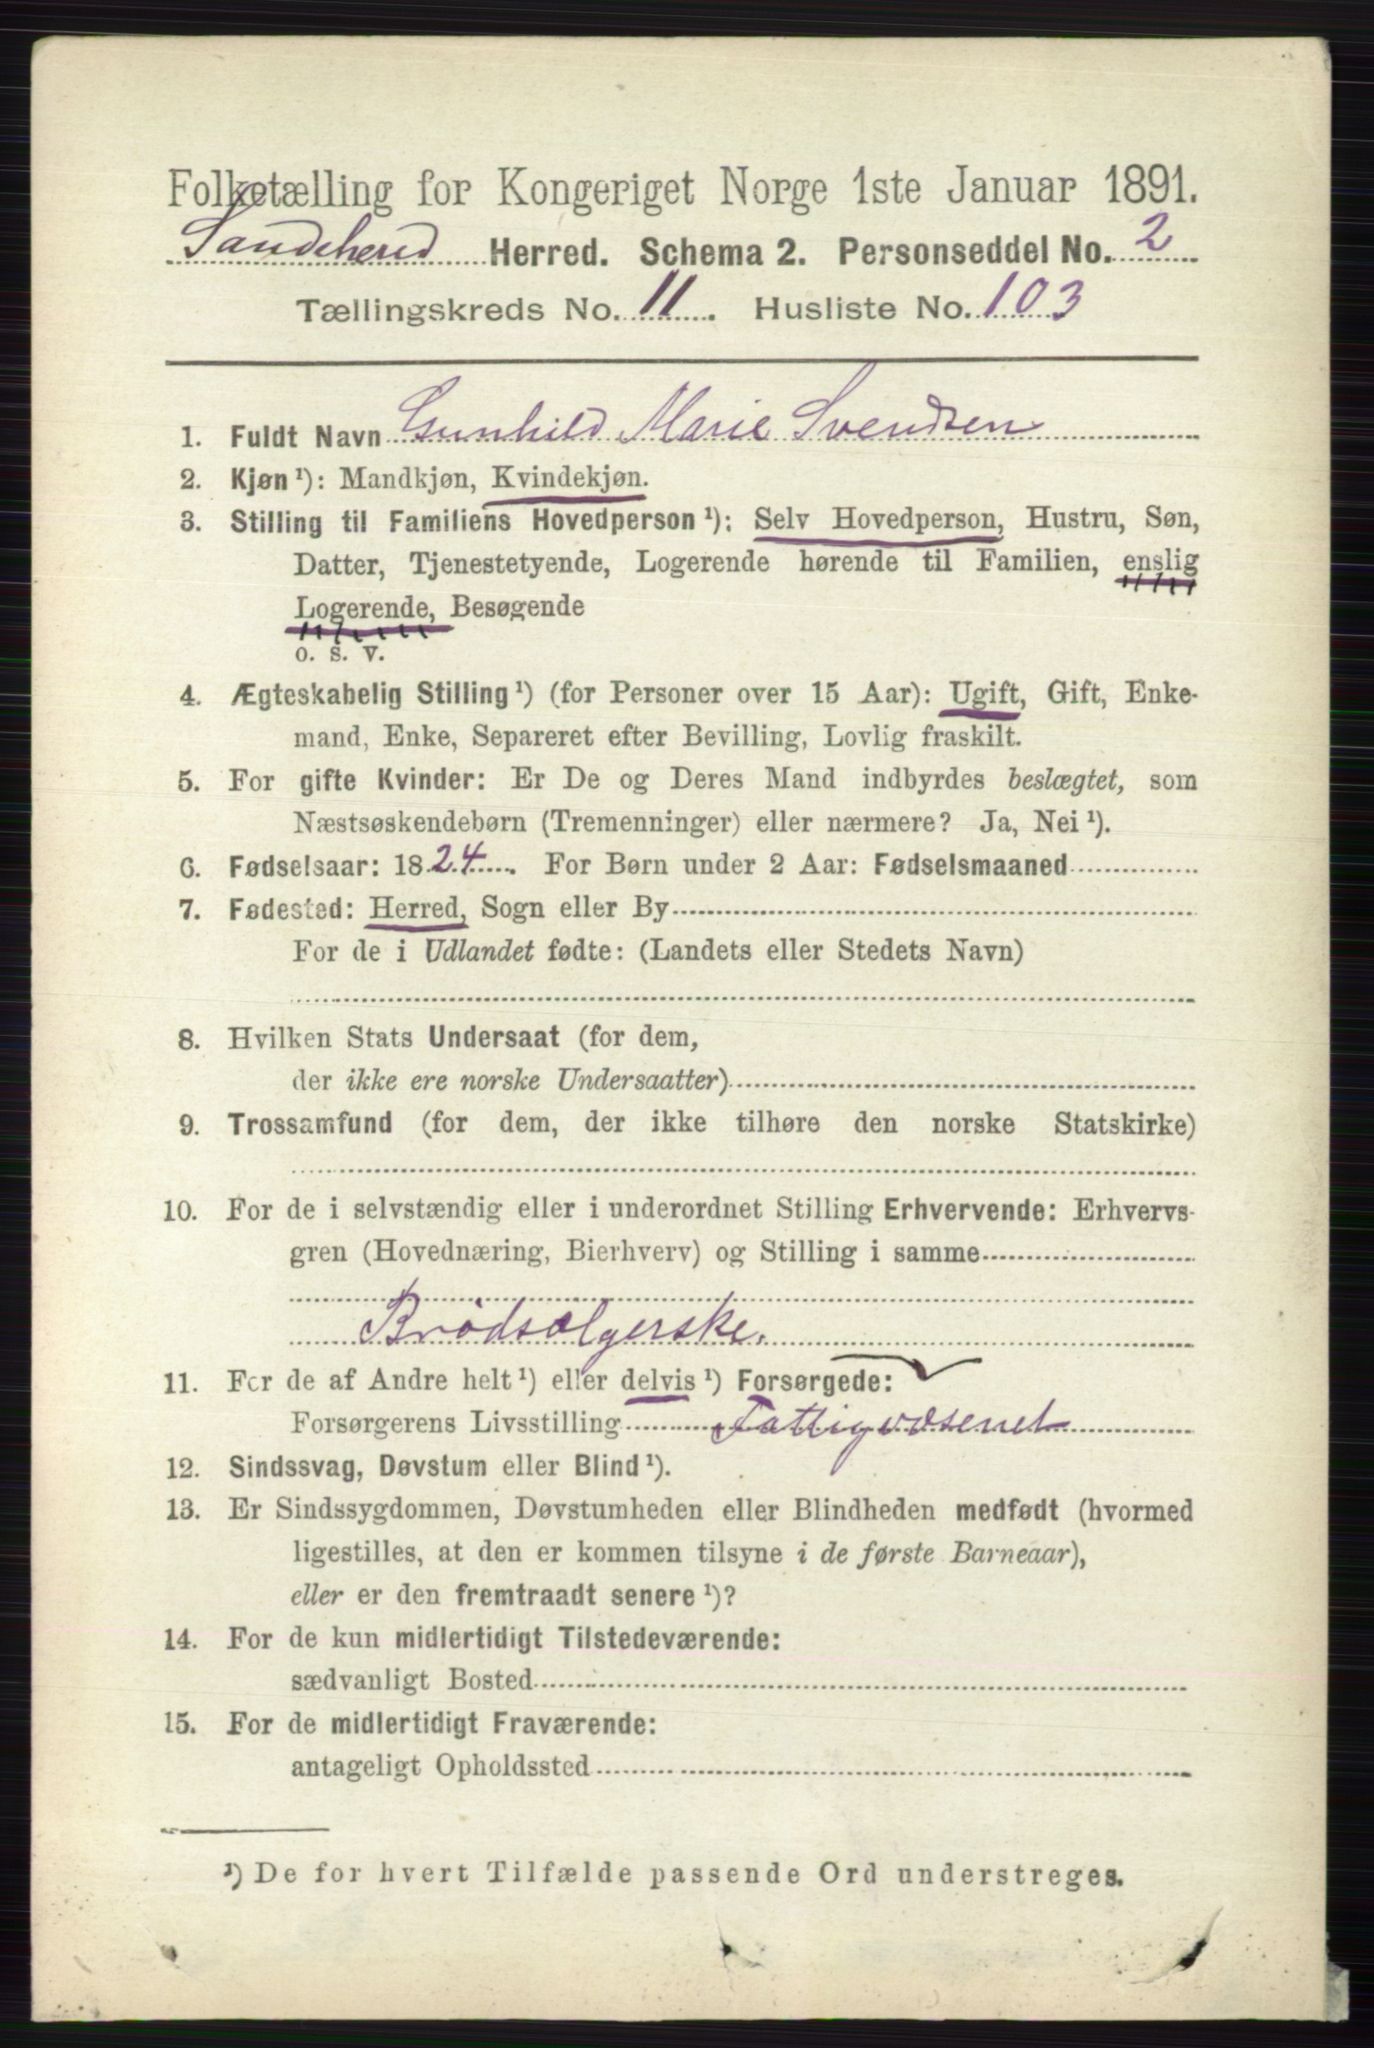 Folketælling for Kongeriget Norge 1ste Januar 1891.
Sandeherred Herred. Schema 2. Personseddel No. 2
Tællingskreds No. 11. Husliste No. 103
1. Fuldt Navn Gunhild Marie Svendsen
2. Kjøn ¹): Mandkjøn, Kvindekjøn.
3. Stilling til Familiens Hovedperson ¹): Selv Hovedperson, Hustru, Søn,
Datter, Tjenestetyende, Logerende hørende til Familien, enslig
Logerende, Besøgende
o. s. v.
4. Ægteskabelig Stilling ¹) (for Personer over 15 Aar): Ugift, Gift, Enke-
mand, Enke, Separeret efter Bevilling, Lovlig fraskilt.
5. For gifte Kvinder: Er De og Deres Mand indbyrdes beslægtet, som
Næstsøskendebørn (Tremenninger) eller nærmere? Ja, Nei ¹).
6. Fødselsaar: 1824. For Børn under 2 Aar: Fødselsmaaned
7. Fødested: Herred, Sogn eller By
For de i Udlandet fødte: (Landets eller Stedets Navn)
8. Hvilken Stats Undersaat (for dem,
der ikke ere norske Undersaatter)
9. Trossamfund (for dem, der ikke tilhøre den norske Statskirke)
10. For de i selvstændig eller i underordnet Stilling Erhvervende: Erhvervs-
gren (Hovednæring, Bierhverv) og Stilling i samme
Brødsælgerske.
11. For de af Andre helt ¹) eller delvis ¹) Forsørgede:
Forsørgerens Livsstilling Fattigvæsenet
12. Sindssvag, Døvstum eller Blind ¹).
13. Er Sindssygdommen, Døvstumheden eller Blindheden medfødt (hvormed
ligestilles, at den er kommen tilsyne i de første Barneaar),
eller er den fremtraadt senere ¹)?
14. For de kun midlertidigt Tilstedeværende:
sædvanligt Bosted
15. For de midlertidigt Fraværende:
antageligt Opholdssted
¹) De for hvert Tilfælde passende Ord understreges.